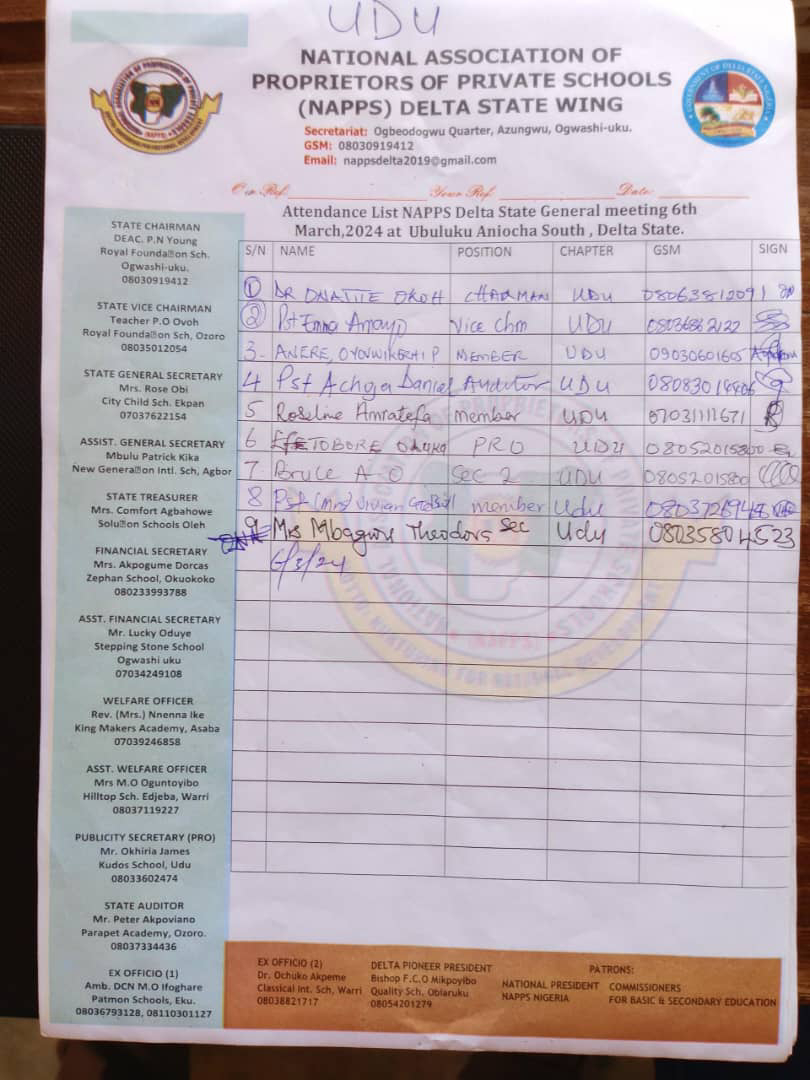 UDU
NATIONAL ASSOCIATION OF
PROPRIETORS OF PRIVATE SCHOOLS
(NAPPS) DELTA STATE WING
Secretariat: Ogbeodogwu Quarter, Azungwu, Ogwashi-uku.
GSM: 08030919412
Email: nappsdelta2019@gmail.com
Our Ref. Your Ref. Date:
Attendance List NAPPS Delta State General meeting 6th
March,2024 at Ubuluku Aniocha South , Delta State.
S/N NAME POSITION CHAPTER GSM SIGN
1 DR OKOH CHAIRMAN UDU 08063812091
2 Pst Emma Vice Chm UDU
3. ANERE, P MEMBER UDU 09030601605
4 Pst Daniel Auditor UDU
5 Roseline member UDU 07031111671
6 PRO UDU
7. Bruce A-O Sec 2 UDU 08052015800
8 Pst (Mrs) Vivian member Udu
9 Mrs Theodora Sec Udu 08035804523
6/3/24
STATE CHAIRMAN
DEAC. P.N Young
Royal Foundation Sch.
Ogwashi-uku.
08030919412
STATE VICE CHAIRMAN
Teacher P.O Ovoh
Royal Foundation Sch, Ozoro
08035012054
STATE GENERAL SECRETARY
Mrs. Rose Obi
City Child Sch. Ekpan
07037622154
ASSIST. GENERAL SECRETARY
Mbulu Patrick Kika
New Generation Intl. Sch, Agbor
STATE TREASURER
Mrs. Comfort Agbahowe
Solution Schools Oleh
FINANCIAL SECRETARY
Mrs. Akpogume Dorcas
Zephan School, Okuokoko
080233993788
ASST. FINANCIAL SECRETARY
Mr. Lucky Oduye
Stepping Stone School
Ogwashi uku
07034249108
WELFARE OFFICER
Rev. (Mrs.) Nnenna Ike
King Makers Academy, Asaba
07039246858
ASST. WELFARE OFFICER
Mrs M.O Oguntoyibo
Hilltop Sch. Edjeba, Warri
08037119227
PUBLICITY SECRETARY (PRO)
Mr. Okhiria James
Kudos School, Udu
08033602474
STATE AUDITOR
Mr. Peter Akpoviano
Parapet Academy, Ozoro.
08037334436
EX OFFICIO (1)
Amb. DCN M.O Ifoghare
Patmon Schools, Eku.
08036793128, 08110301127
EX OFFICIO (2)
Dr. Ochuko Akpeme
Classical Int. Sch, Warri
08038821717
DELTA PIONEER PRESIDENT
Bishop F.C.O Mikpoyibo
Quality Sch. Obiaruku
08054201279
PATRONS:
NATIONAL PRESIDENT
NAPPS NIGERIA
COMMISSIONERS
FOR BASIC & SECONDARY EDUCATION